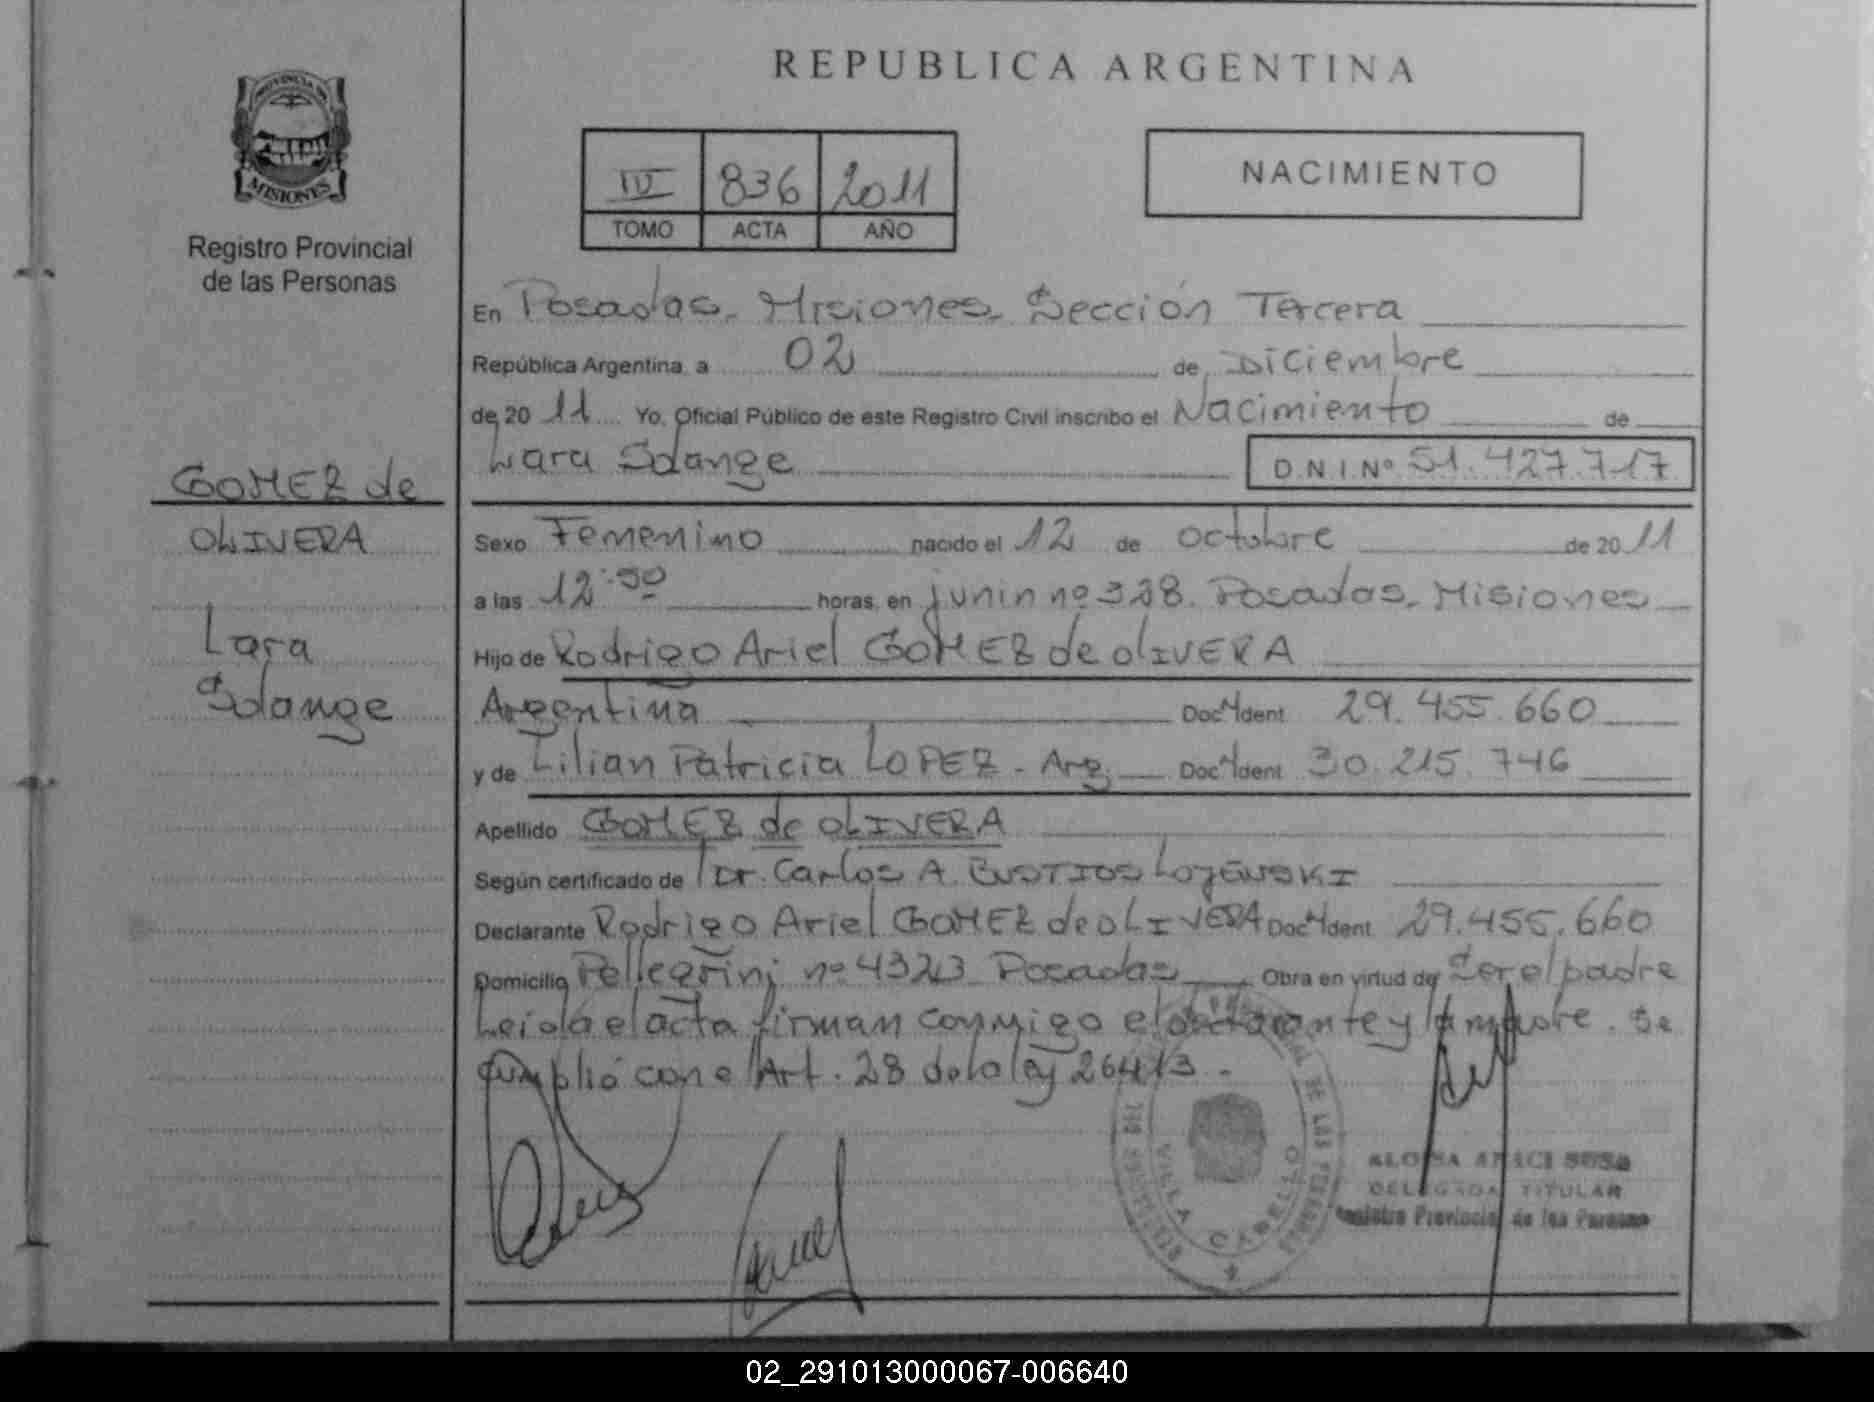 REPUBLICA ARGENTINA
PROVINCIA DE
MISIONES
Registro Provincial
de las Personas
TOMO 836 ACTA 2011 AÑO
NACIMIENTO
En Posadas - Misiones - Sección Tercera
República Argentina, a 02 de Diciembre
de 20 11 Yo, Oficial Público de este Registro Civil inscribo el Nacimiento de
Lara Solange D.N.I.Nº 51.427.717
GOMEZ de
OLIVERA
Lara
Solange
Sexo Femenino nacido el 12 de octubre de 20 11
a las 12:50 horas, en junin nº 328. Posadas - Misiones
Hijo de Rodrigo Ariel GOMEZ de OLIVERA
Argentina Doc. Ident 29.455.660
y de Lilian Patricia LOPEZ - Arg. Doc. Ident 30.215.746
Apellido GOMEZ de OLIVERA
Según certificado de Dr. Carlos A. BUSTIOS LOJEWSKI
Declarante Rodrigo Ariel GOMEZ de OLIVERA Doc. Ident 29.455.660
Domicilio Pellegrini nº 4323 Posadas Obra en virtud de Ser el padre
Leida el acta firman conmigo el declarante y la madre. Se
cumplió con el Art. 28 de la ley 26413 -
VILLA CABELLO
DELEGADA TITULAR
Registro Provincial de las Personas
02_291013000067-006640